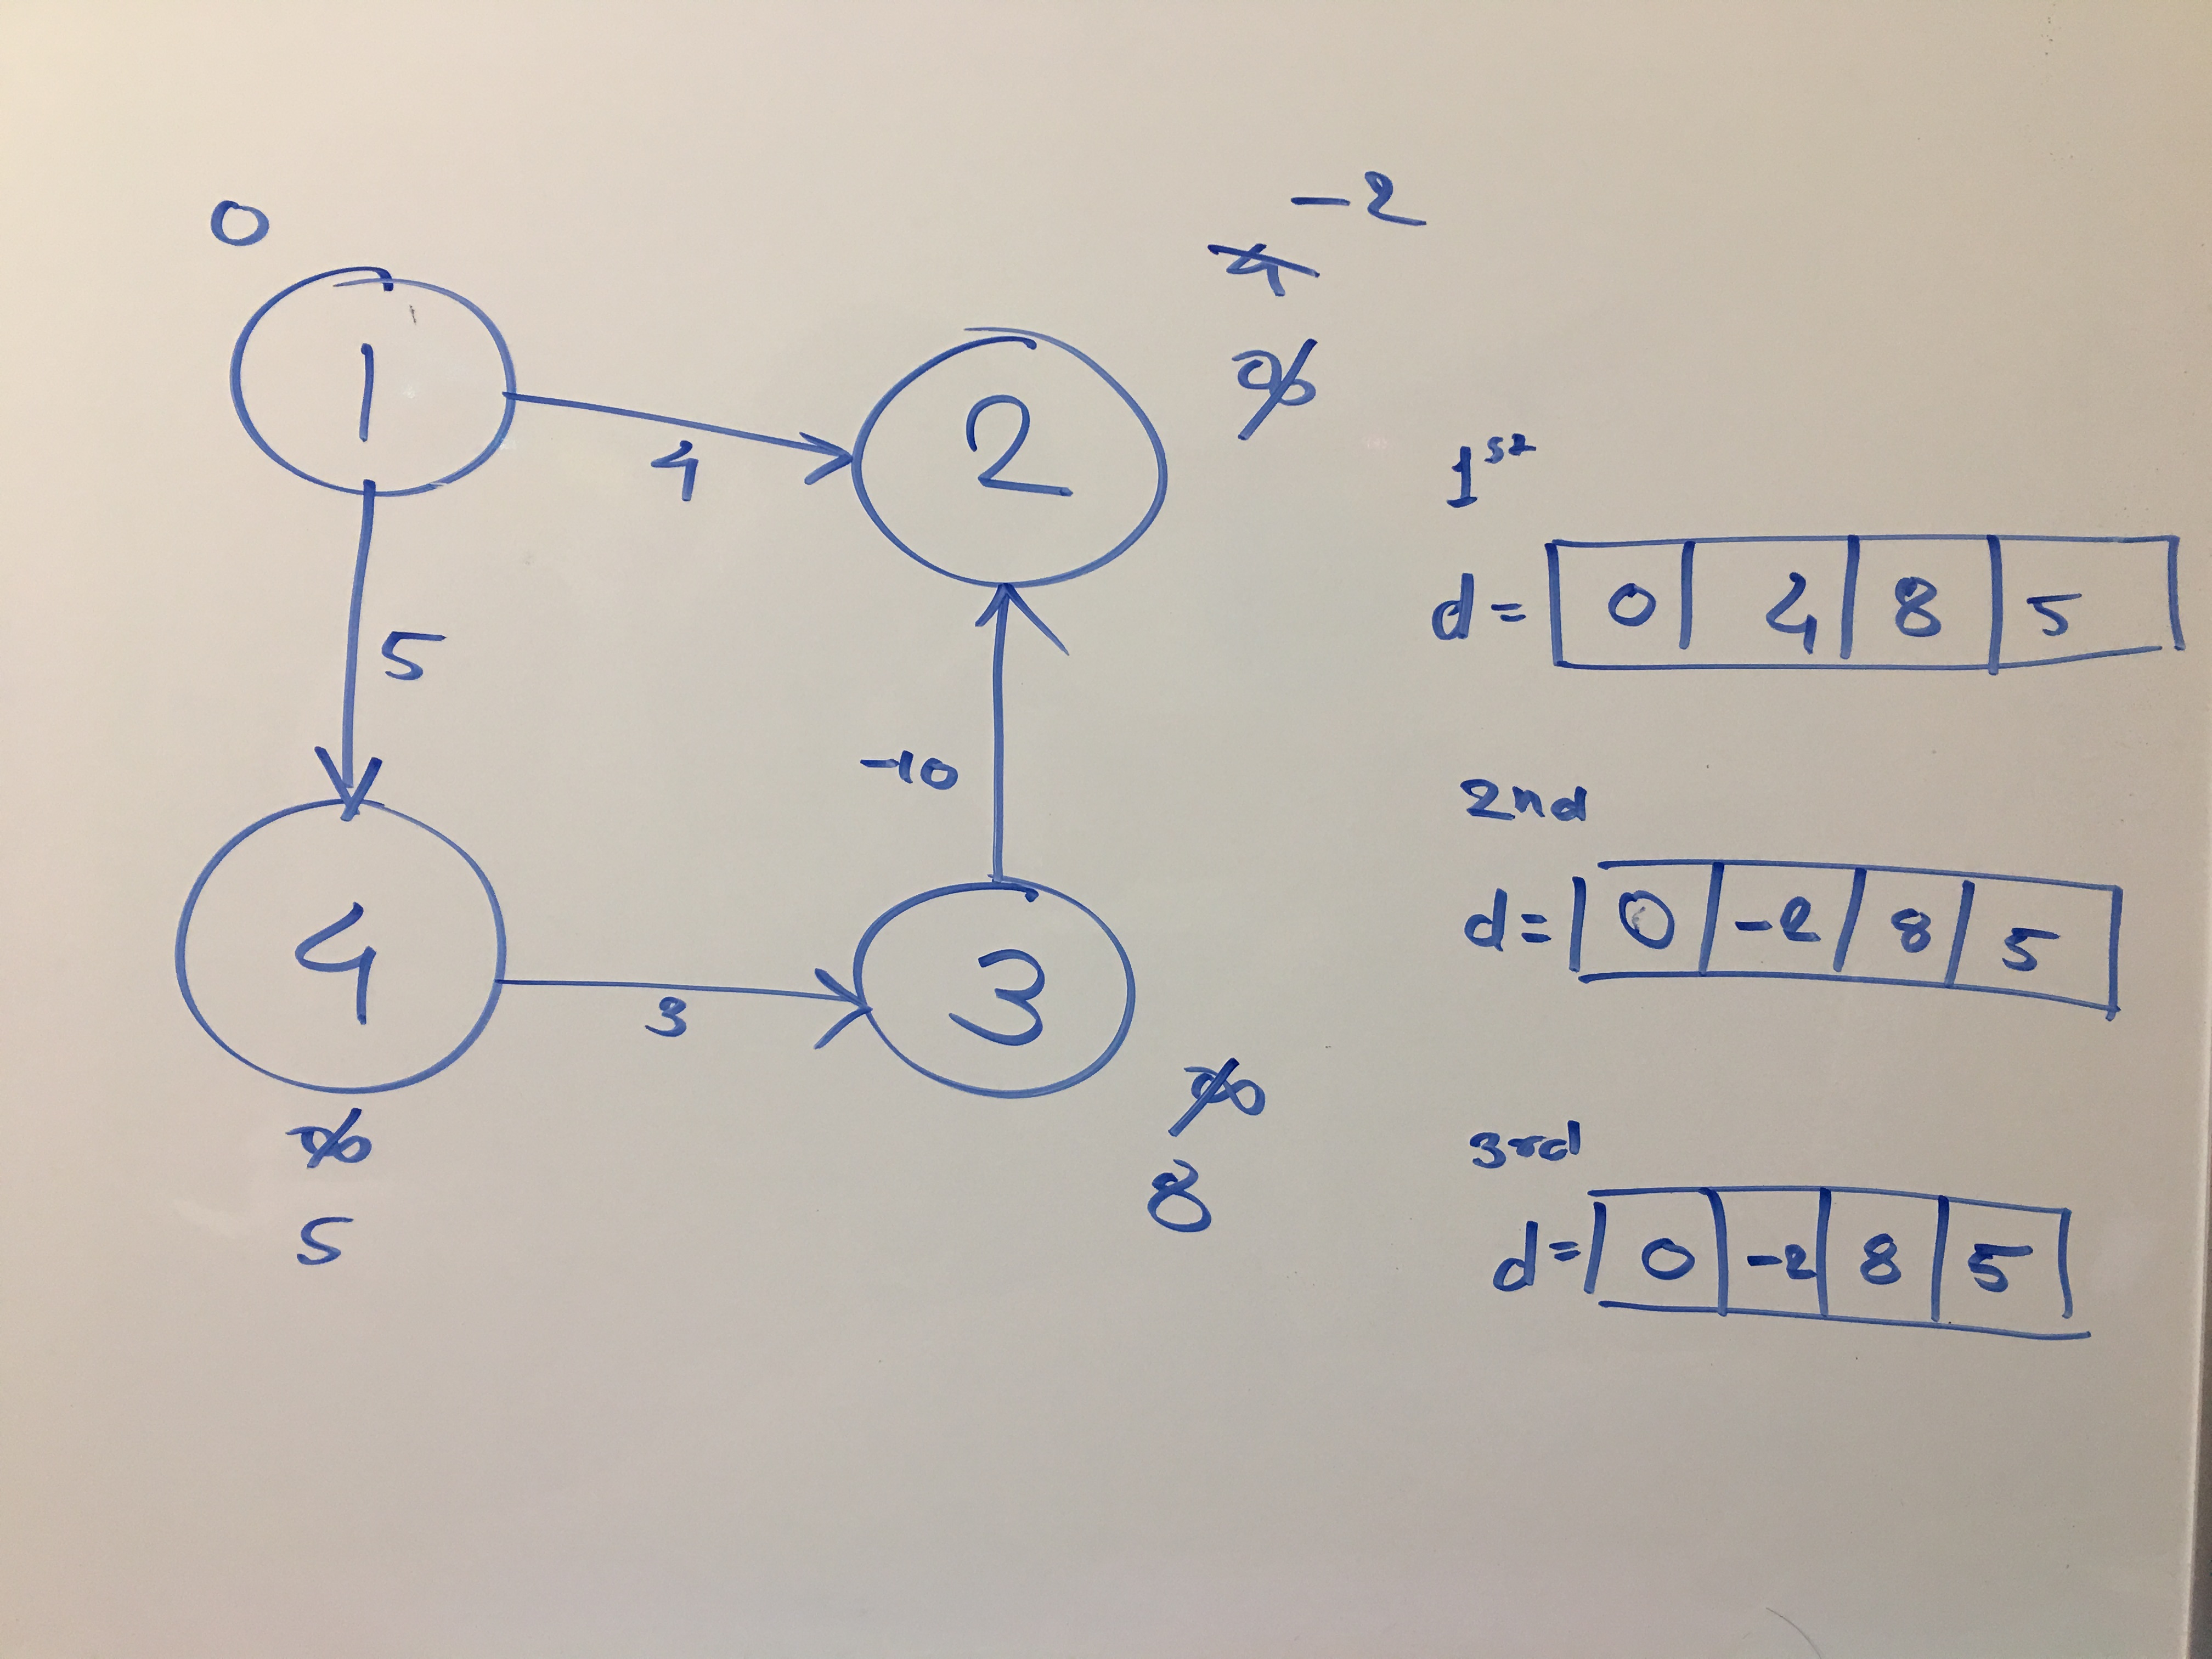 0
1
4
5
2
-2
4
∞
-10
4
3
3
∞
5
∞
8
1st
d = 0 4 8 5
2nd
d = 0 -2 8 5
3rd
d = 0 -2 8 5